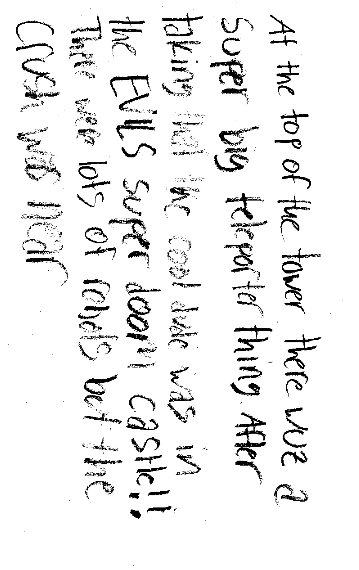 At the top of the tower there wuz a
super big teleporter thing After
taking that the cool dude was in
the EVILS super doom castle!!
There were lots of robots but the
crush was near